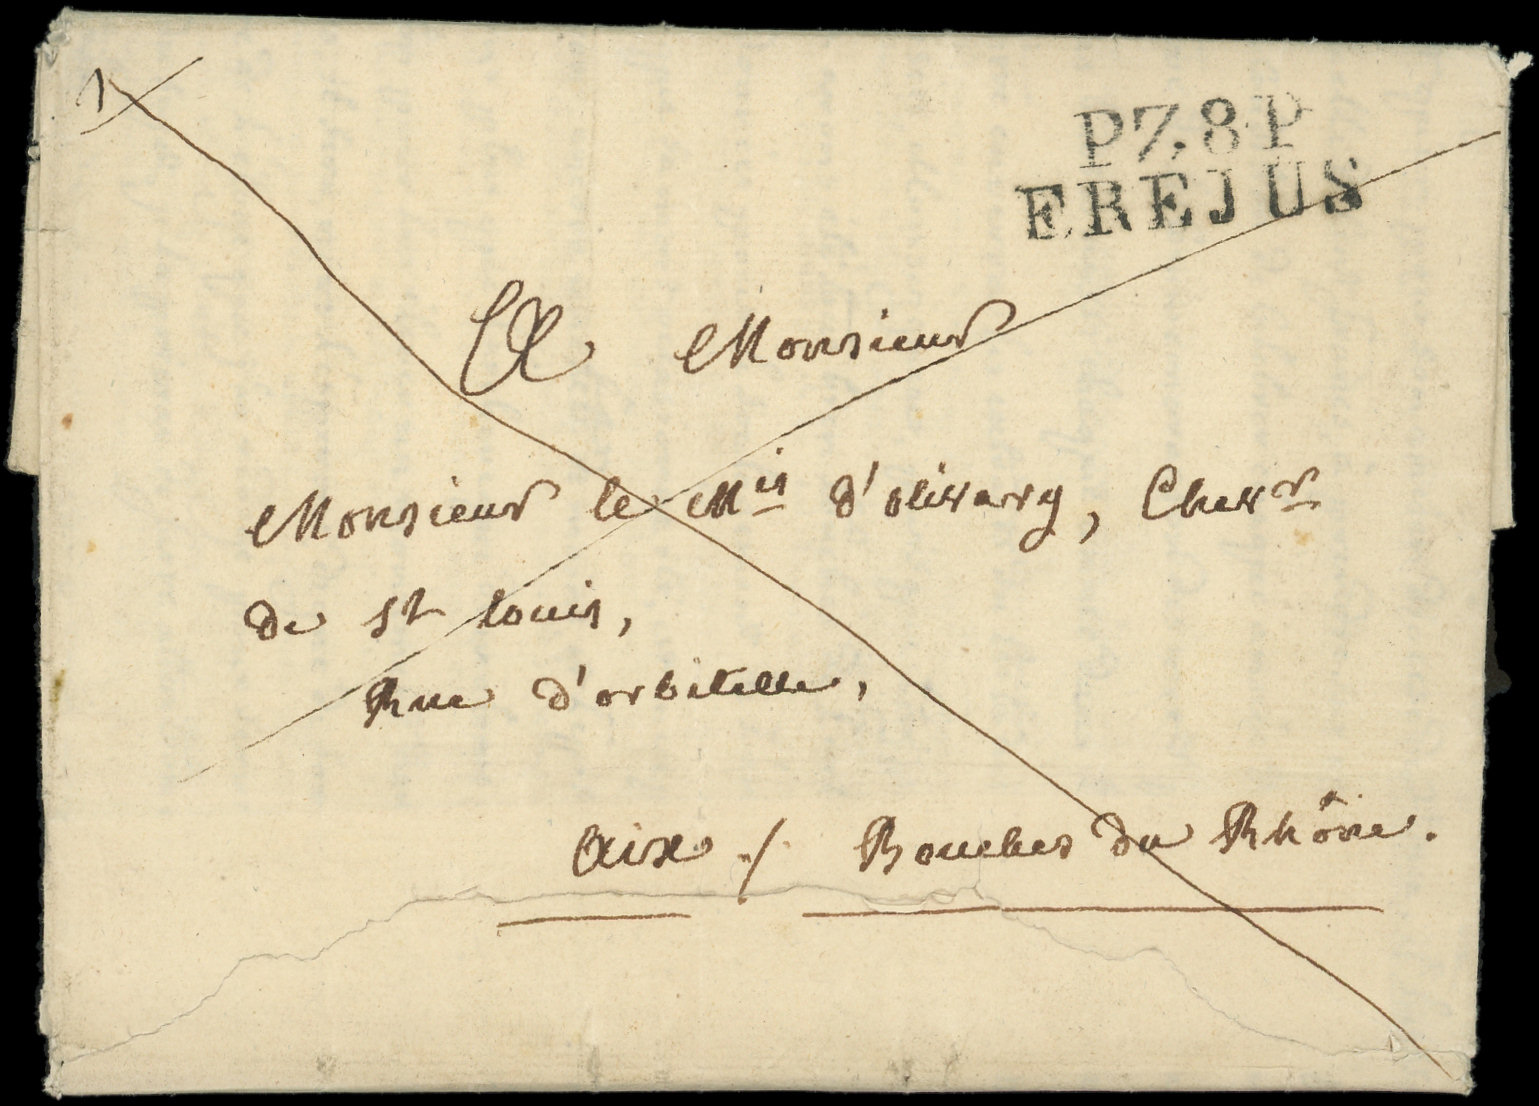 1
P.78.P
FREJUS
A Monsieur
Monsieur le Mis d'olivary, Chevr
de St louis,
Rue d'orbitelle,
Aix ./. Bouches du Rhône.